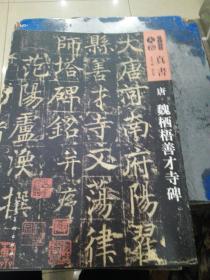 真書
唐 魏栖梧善才寺碑
大唐河南府陽翟
縣善才寺文蕩律
師塔碑銘并序
范陽盧渙撰